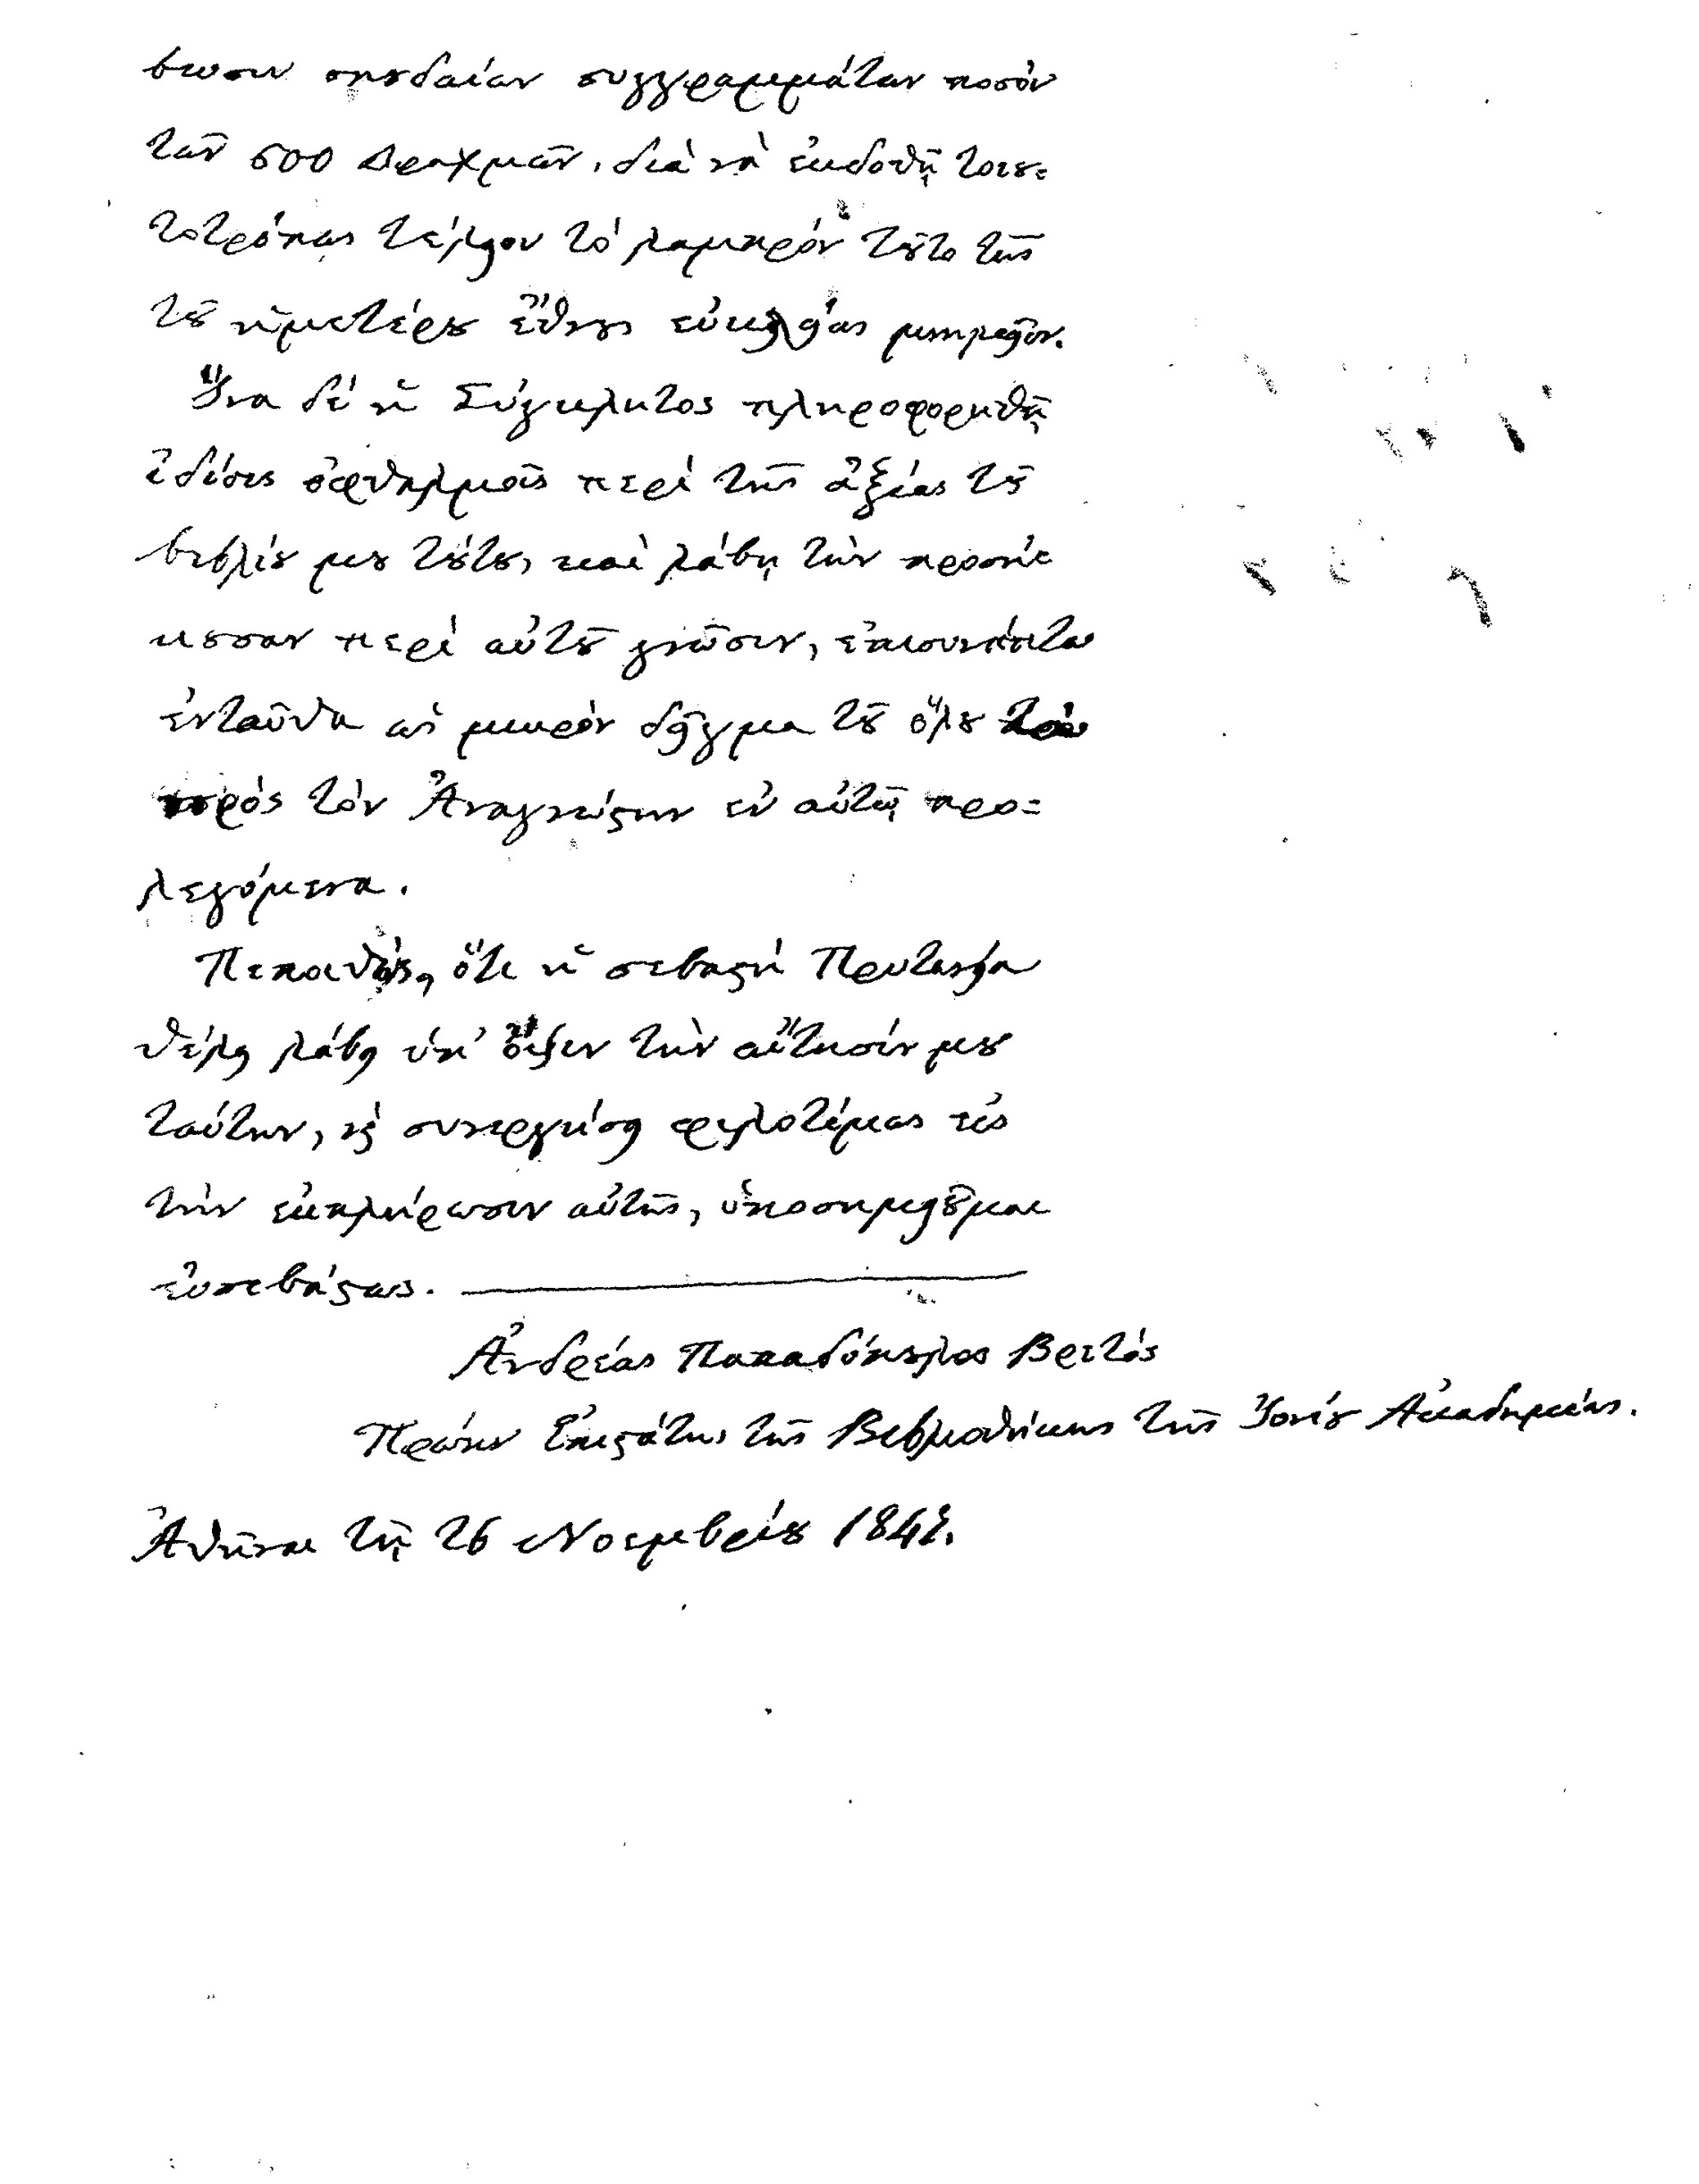 βωσιν σπουδαίων συγγραμμάτων ποσὸν
τῶν 500 Δραχμῶν, διὰ νὰ ἐκδοθῇ τοιου=
τοτρόπως τέλειον τὸ λαμπρὸν τοῦτο τῆς
τοῦ ἡμετέρου ἔθνους εὐκλείας μνημεῖον.
Ἵνα δὲ ἡ Σύγκλητος πληροφορηθῇ
ἰδίοις ὀφθαλμοῖς περὶ τῆς ἀξίας τοῦ
βιβλίου μου τούτου, καὶ λάβῃ τὴν προσή=
κουσαν περὶ αὐτοῦ γνῶσιν, ἐπισυνάπτω
ἐνταῦθα ὡς μικρὸν δεῖγμα τοῦ ὅλου τὰ
πρὸς τὸν Ἀναγνώστην ἐν αὐτῷ προ=
λεγόμενα.
Πεποιθὼς, ὅτι ἡ σεβαστὴ Πρυτανεία
θέλει λάβει ὑπ' ὄψιν τὴν αἴτησίν μου
ταύτην, καὶ συνεργήσει φιλοτίμως εἰς
τὴν ἐκπλήρωσιν αὐτῆς, ὑποσημειοῦμαι
εὐσεβάστως.
Ἀνδρέας Παπαδόπουλος Βρετός
Πρώην Ἐπιστάτης τῆς Βιβλιοθήκης τῆς Ἰονίου Ἀκαδημίας.
Ἀθῆναι τῇ 26 Νοεμβρίου